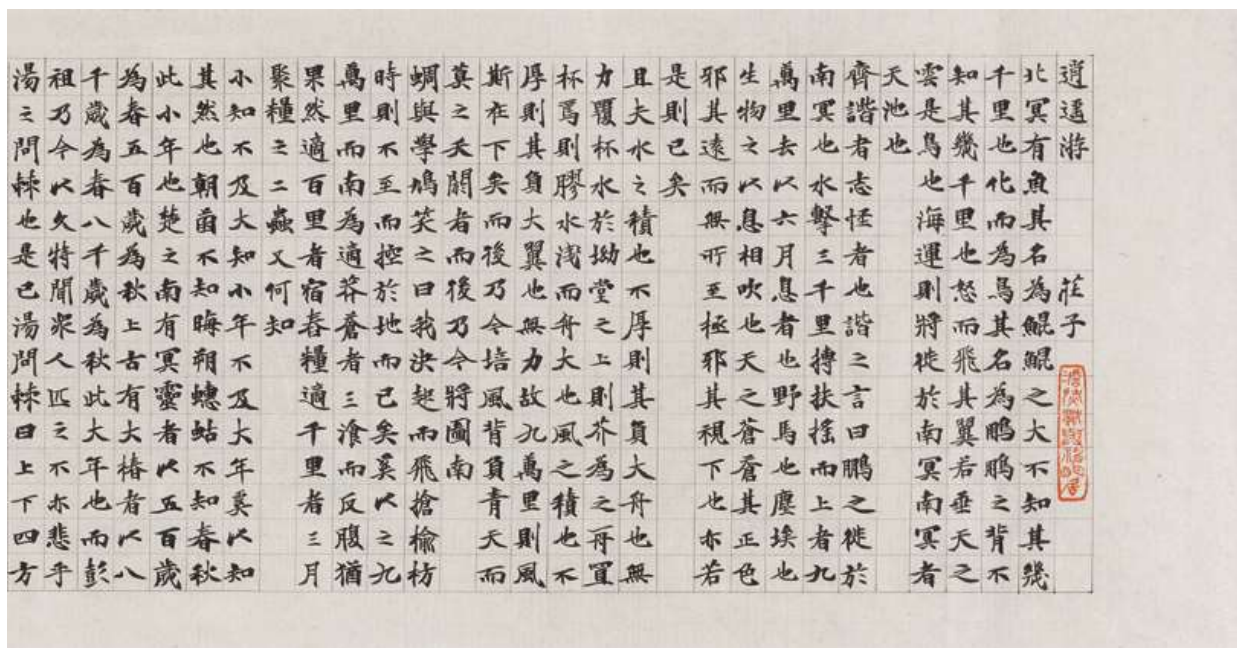 逍遙游 莊子
北冥有魚其名為鯤鯤之大不知其幾
千里也化而為鳥其名為鵬鵬之背不
知其幾千里也怒而飛其翼若垂天之
雲是鳥也海運則將徙於南冥南冥者
天池也
齊諧者志怪者也諧之言曰鵬之徙於
南冥也水擊三千里摶扶搖而上者九
萬里去以六月息者也野馬也塵埃也
生物之以息相吹也天之蒼蒼其正色
邪其遠而無所至極邪其視下也亦若
是則已矣
且夫水之積也不厚則其負大舟也無
力覆杯水於坳堂之上則芥為之舟置
杯焉則膠水淺而舟大也風之積也不
厚則其負大翼也無力故九萬里則風
斯在下矣而後乃今培風背負青天而
莫之夭閼者而後乃今將圖南
蜩與學鳩笑之曰我決起而飛搶榆枋
時則不至而控於地而已矣奚以之九
萬里而南為適莽蒼者三飡而反腹猶
果然適百里者宿舂糧適千里者三月
聚糧之二蟲又何知
小知不及大知小年不及大年奚以知
其然也朝菌不知晦朔蟪蛄不知春秋
此小年也楚之南有冥靈者以五百歲
為春五百歲為秋上古有大椿者以八
千歲為春八千歲為秋此大年也而彭
祖乃今以久特聞眾人匹之不亦悲乎
湯之問棘也是已湯問棘曰上下四方